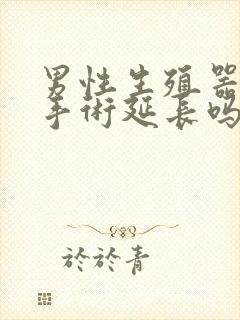 男性生殖器
手術延長吗
於於青